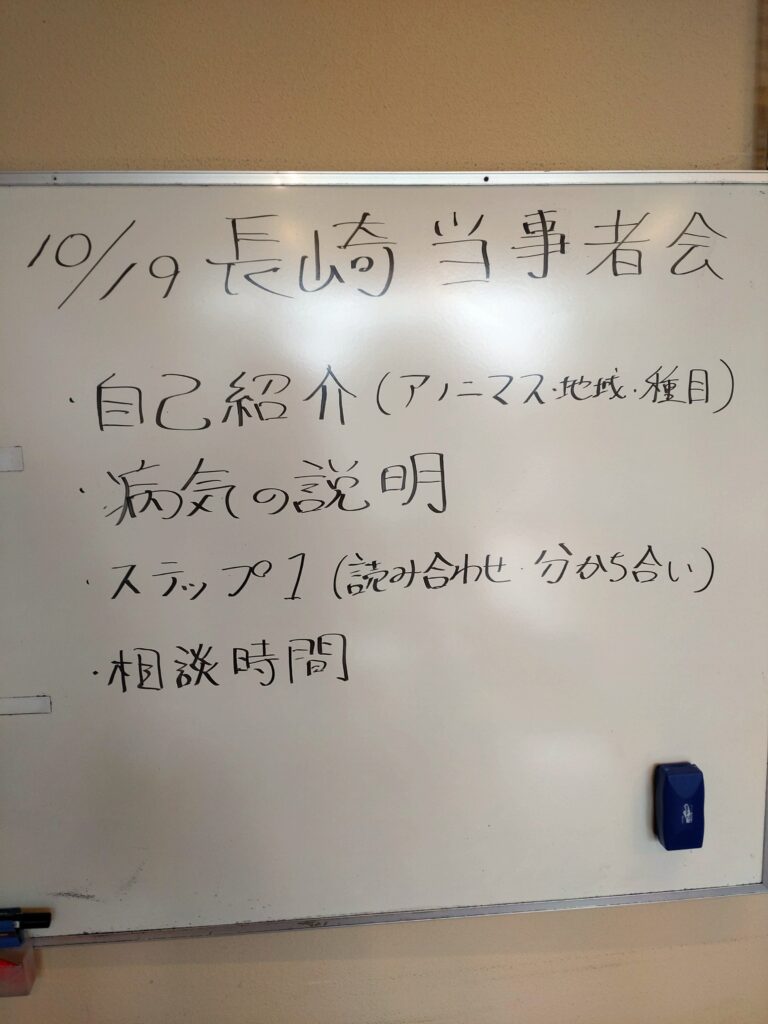 10/19 長崎 当事者会
・自己紹介(アノニマス・地域・種目)
・病気の説明
・ステップ1(読み合わせ・分かち合い)
・相談時間